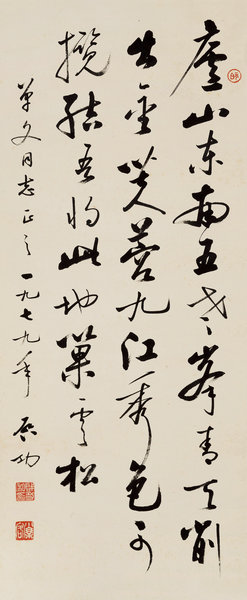 廬山東南五老峯青天削
出金芙蓉九江秀色可
攬結吾將此地巢雲松
同志正之一九七九年 启功